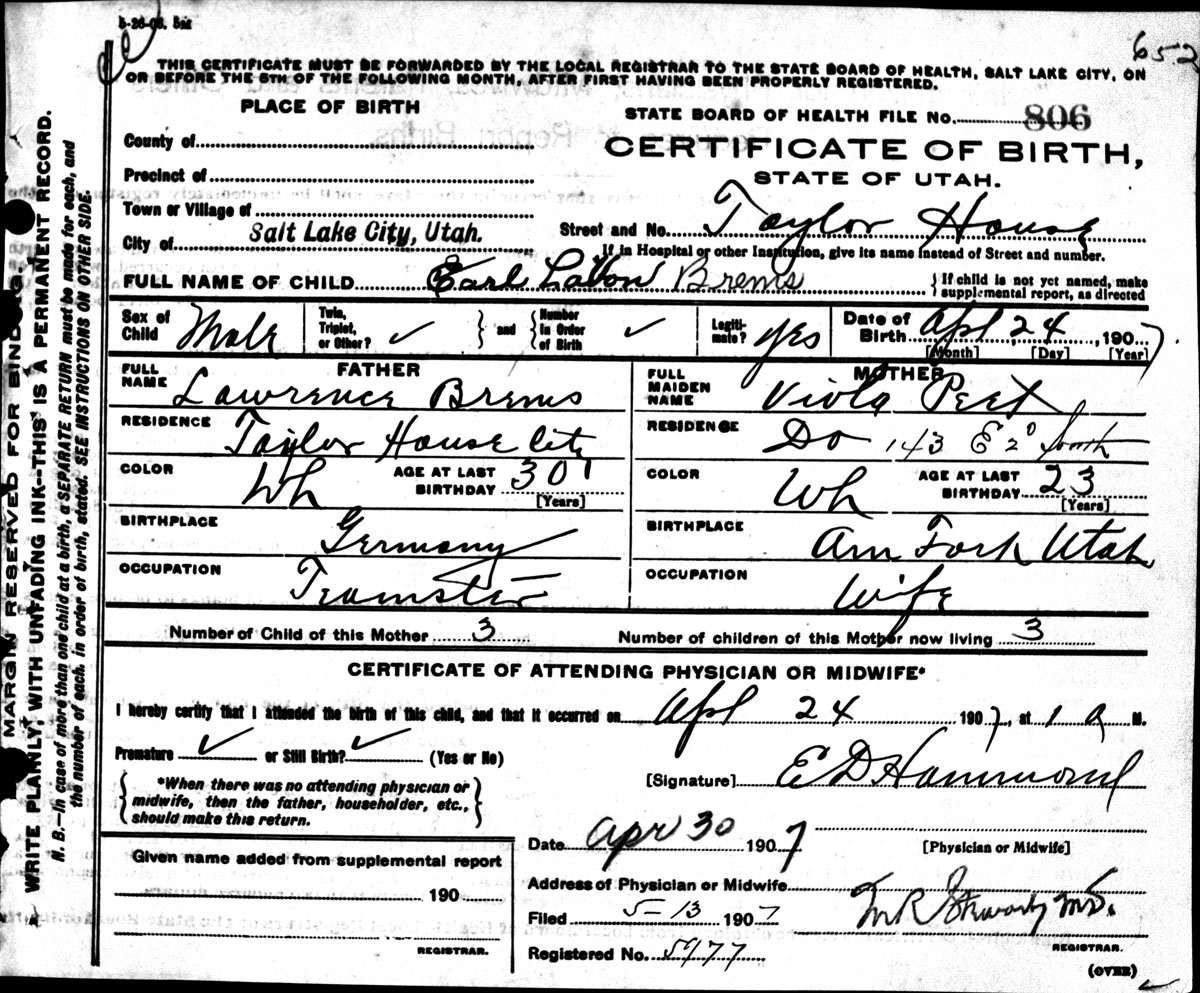 5-26-06. 5M
652
THIS CERTIFICATE MUST BE FORWARDED BY THE LOCAL REGISTRAR TO THE STATE BOARD OF HEALTH, SALT LAKE CITY, ON
OR BEFORE THE 5TH OF THE FOLLOWING MONTH, AFTER FIRST HAVING BEEN PROPERLY REGISTERED.
MARGIN RESERVED FOR BINDING.
WRITE PLAINLY, WITH UNFADING INK--THIS IS A PERMANENT RECORD.
N. B.--In case of more than one child at a birth, a SEPARATE RETURN must be made for each, and
the number of each, in order of birth, stated. SEE INSTRUCTIONS ON OTHER SIDE.
PLACE OF BIRTH
County of
Precinct of
Town or Village of
City of Salt Lake City, Utah.
STATE BOARD OF HEALTH FILE No. 806
CERTIFICATE OF BIRTH,
STATE OF UTAH.
Street and No. Taylor House
If in Hospital or other Institution, give its name instead of Street and number.
FULL NAME OF CHILD Earl LaVon Brems { If child is not yet named, make
supplemental report, as directed
Sex of Child Male
Twin, Triplet, or Other? ✓ } and { Number In Order of Birth ✓
Legitimate? yes
Date of Birth Apl, 24, 1907
[Month] [Day] [Year]
FATHER
FULL NAME Lawrence Brems
RESIDENCE Taylor House City
COLOR Wh AGE AT LAST BIRTHDAY 30 [Years]
BIRTHPLACE Germany
OCCUPATION Teamster
MOTHER
FULL MAIDEN NAME Viola Peet
RESIDENCE Do 143 E 2° South
COLOR Wh AGE AT LAST BIRTHDAY 23 [Years]
BIRTHPLACE Am Fork Utah
OCCUPATION Wife
Number of Child of this Mother 3 Number of children of this Mother now living 3
CERTIFICATE OF ATTENDING PHYSICIAN OR MIDWIFE*
I hereby certify that I attended the birth of this child, and that it occurred on Apl 24 1907, at 1 a M.
Premature ✓ or Still Birth? ✓ (Yes or No)
[Signature] E D Hammond
{ *When there was no attending physician or
midwife, then the father, householder, etc.,
should make this return. }
Date Apr 30 1907
[Physician or Midwife]
Given name added from supplemental report
190
REGISTRAR.
Address of Physician or Midwife
Filed 5-13 1907
M R Stewart, M.D.
REGISTRAR.
Registered No. 5977
(OVER)